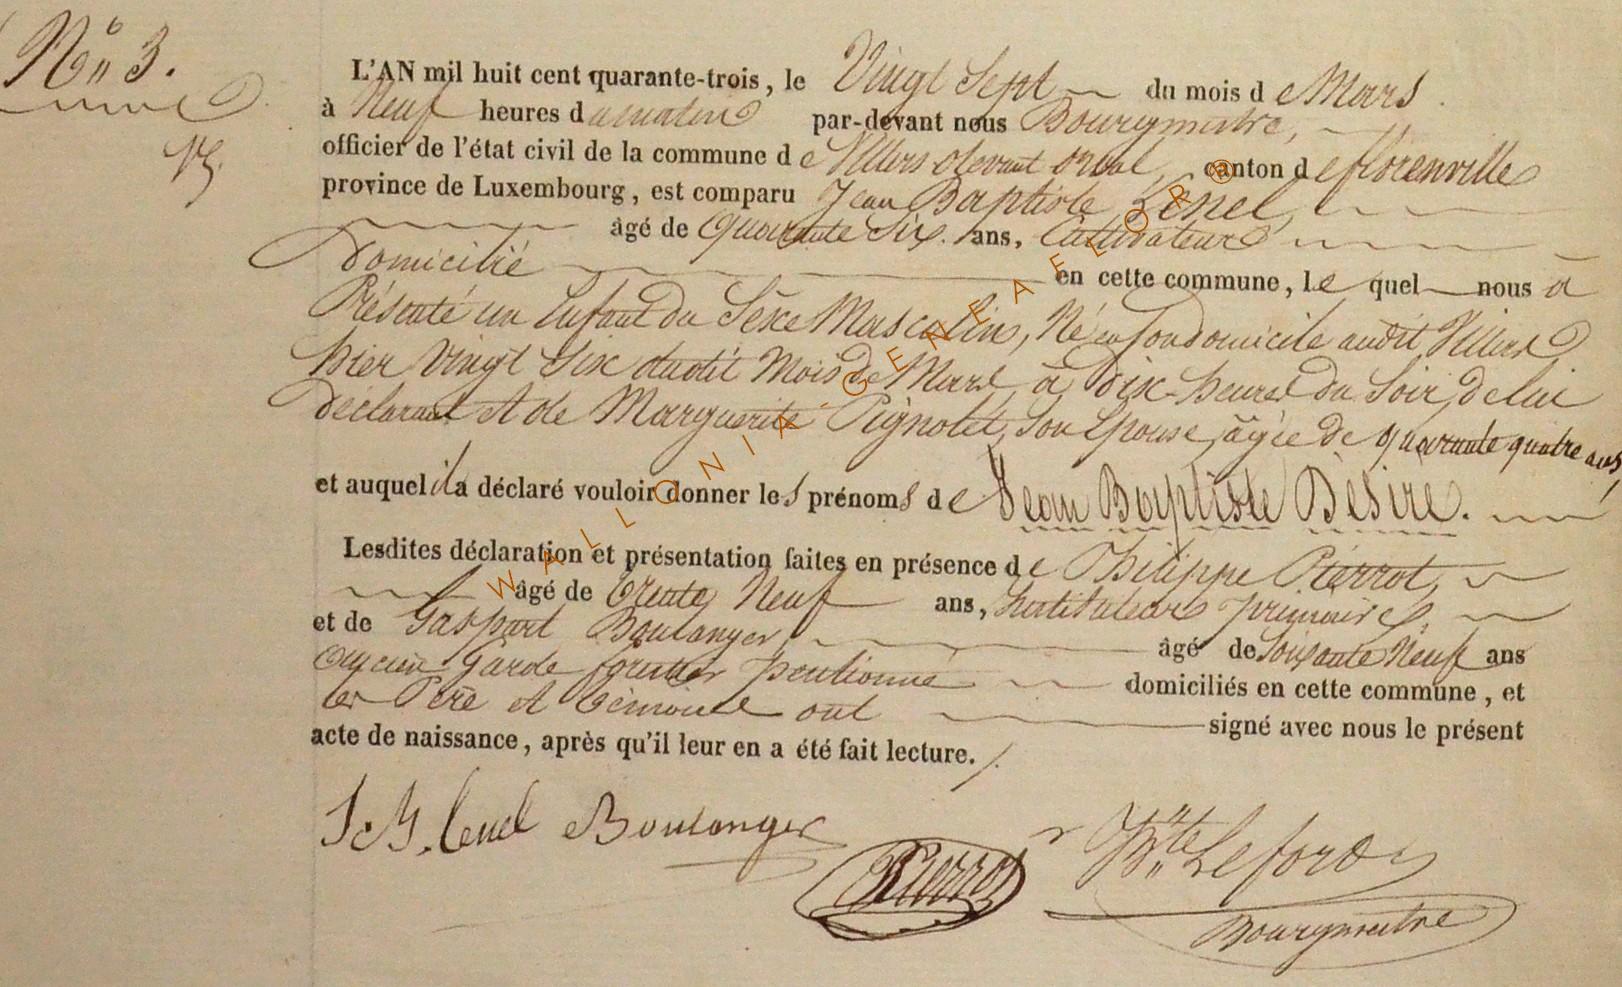 N° 3.
L'AN mil huit cent quarante-trois, le Vingt Sept du mois de Mars.
à Neuf heures du matin par-devant nous Bourgmestre,
officier de l'état civil de la commune de Villers devant orval, canton de florenville
province de Luxembourg, est comparu Jean Baptiste Lenel,
âgé de Quarante Six. ans, Cultivateur
Domicilié en cette commune, le quel nous à
Présenté un Enfant du Séxe Mascalin, Né en son domicile audit Villers
hier vingt Six dudit Mois de Mars, à Dix heures du Soir, De lui
déclarant et de Marguerite Pignolet, Son Epouse, âgée de quarante quatre ans,
et auquel il a déclaré vouloir donner les prénoms de Jean Baptiste Désiré.
Lesdites déclaration et présentation faites en présence de Philippe Pierrot,
âgé de trente Neuf ans, Instituteur primaire,
et de Gaspart Boulanger, âgé de Soixante Neuf ans
Ancien Garde forestier pentionné domiciliés en cette commune, et
les Père et témoins ont signé avec nous le présent
acte de naissance, après qu'il leur en a été fait lecture.
J. B. Lenel Boulanger
Pierrot
Bte Lefort
Bourgmestre
WALLONIA-GENEAFLOR®